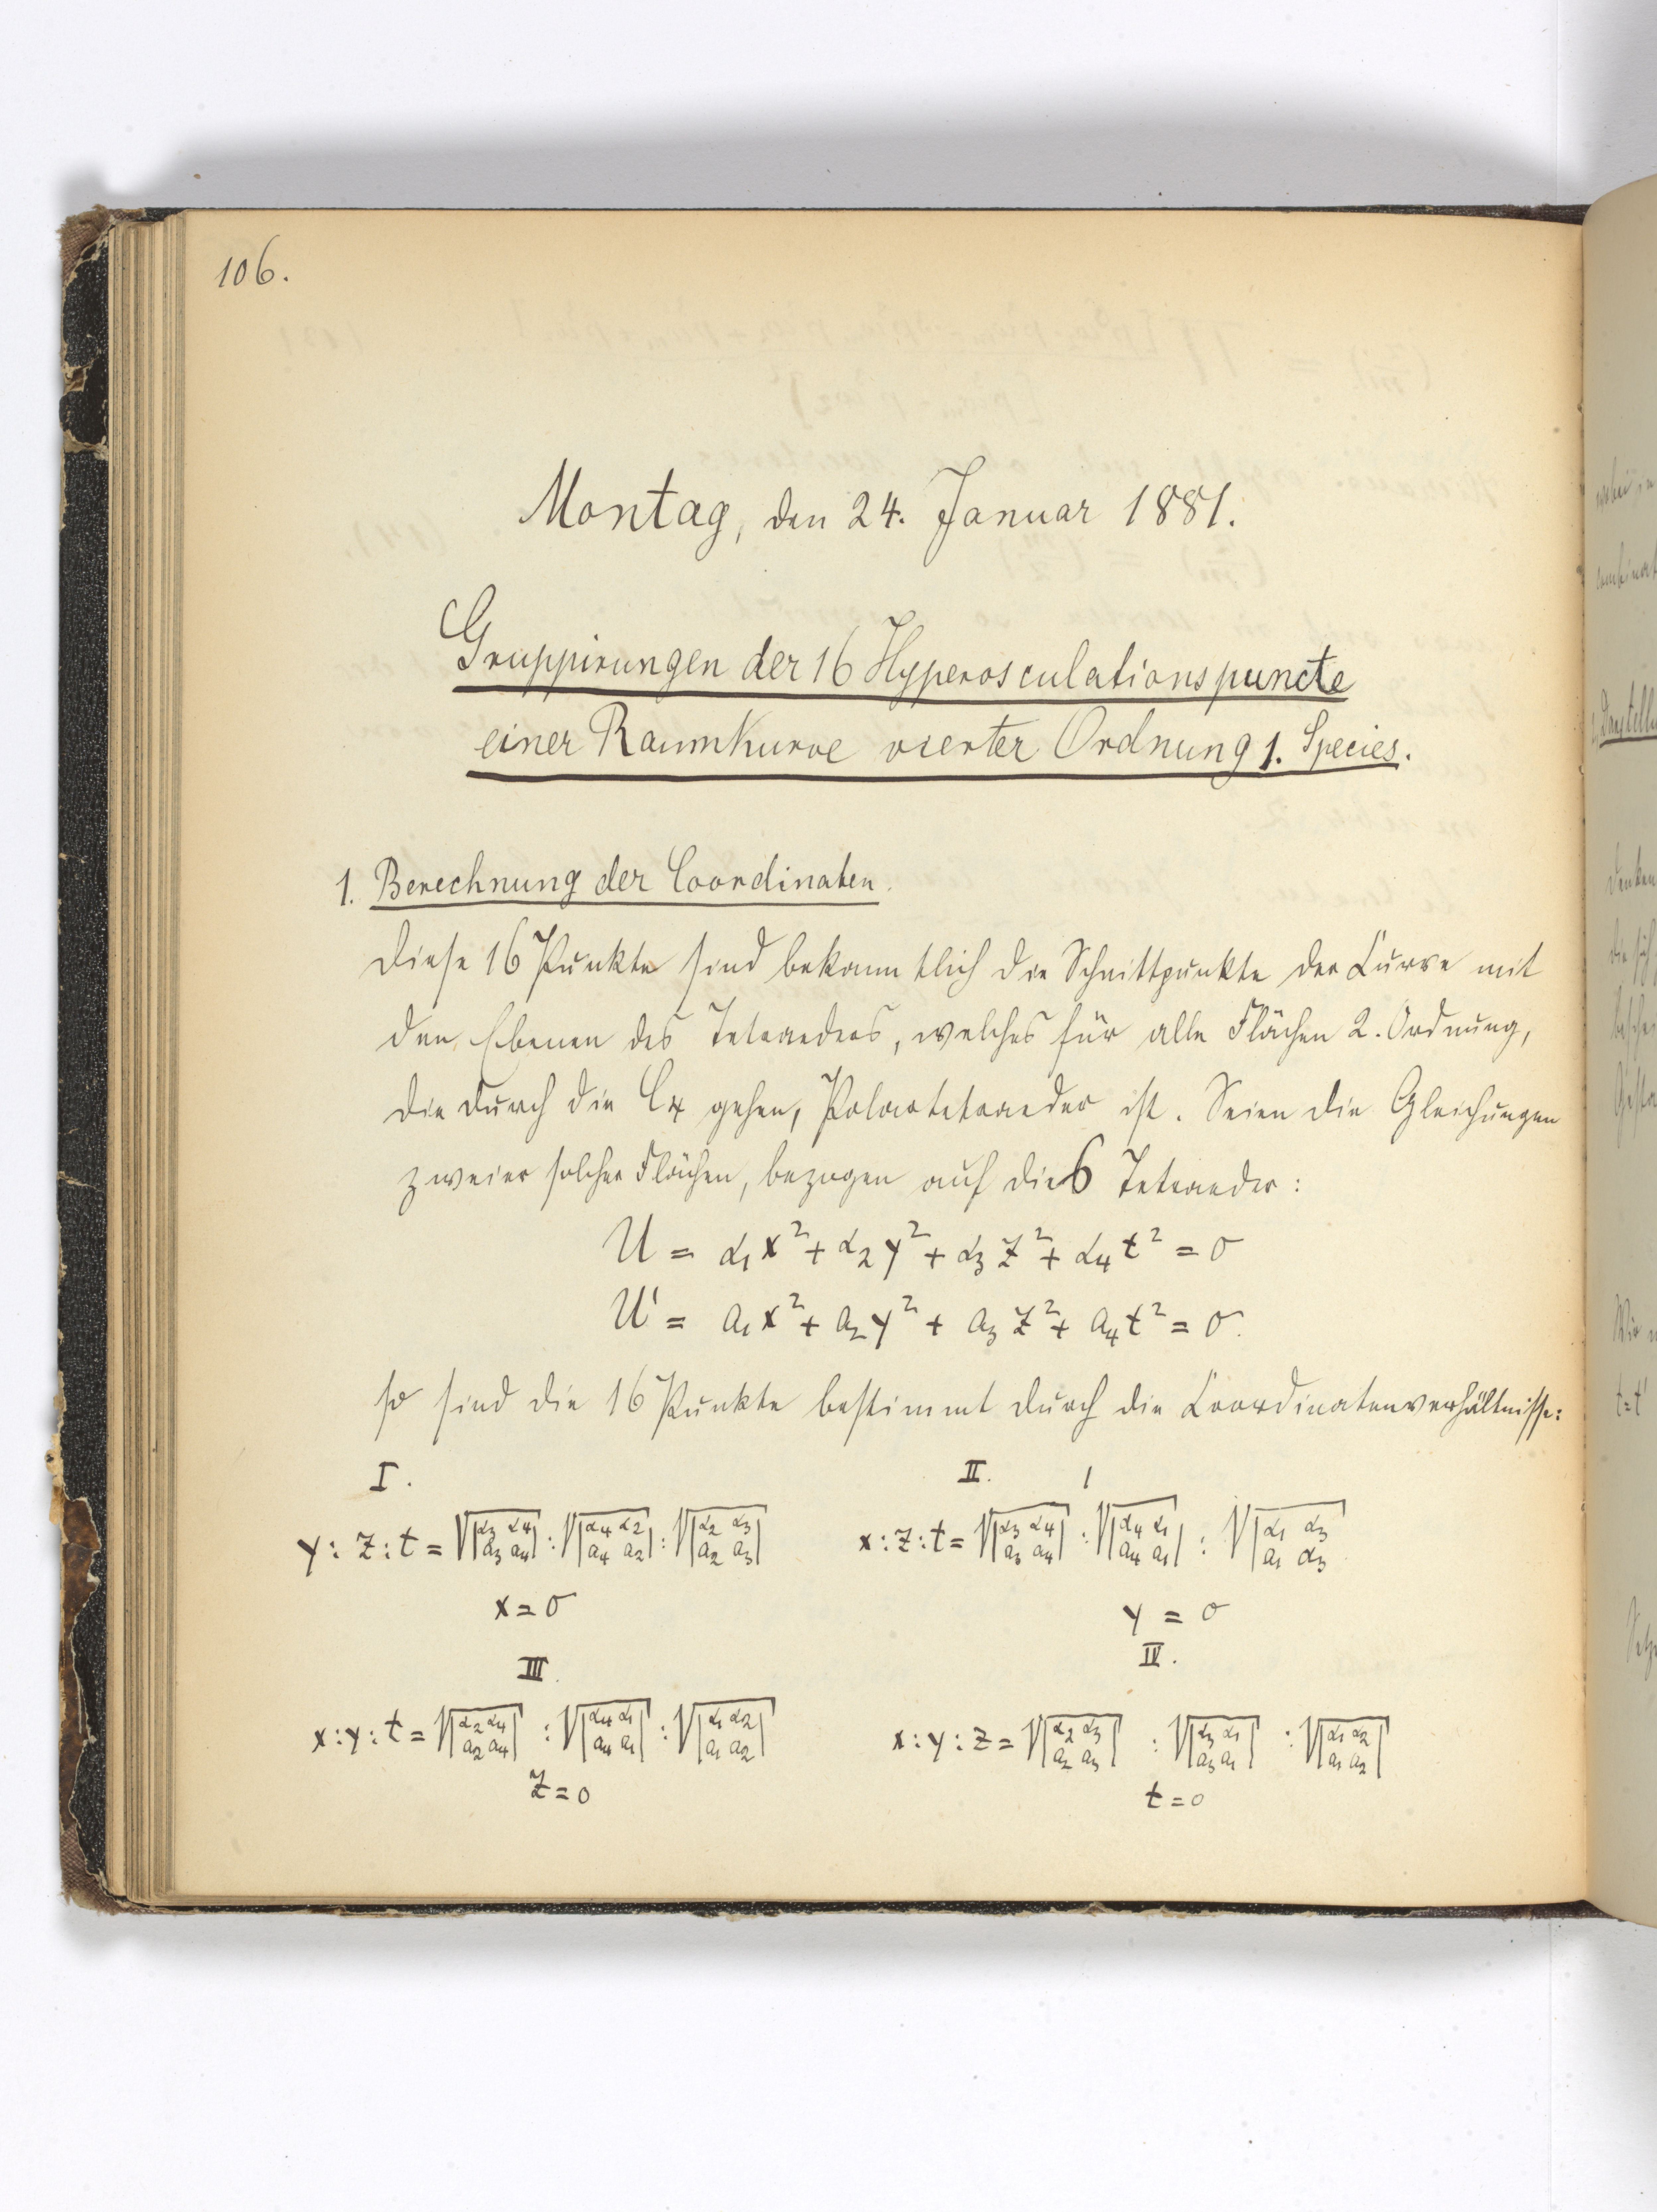 106.
Montag, den 24. Januar 1881.
Gruppirungen der 16 Hyperosculationspuncte
einer Raumkurve vierter Ordnung 1. Species.
1. Berechnung der Coordinaten.
Diese 16 Punkte sind bekanntlich die Schnittpunkte der Curve mit
den Ebenen des Tetraeders, welches für alle Flächen 2. Ordnung,
die durch die C₄ gehen, Polartetraeder ist. Seien die Gleichungen
zweier solcher Flächen, bezogen auf dieß Tetraeder:
U = α₁x² + α₂y² + α₃z² + α₄t² = 0
U' = a₁x² + a₂y² + a₃z² + a₄t² = 0.
so sind die 16 Punkte bestimmt durch die Coordinatenverhältnisse:
I.
y : z : t = √|α₃ α₄ / a₃ a₄| : √|α₄ α₂ / a₄ a₂| : √|α₂ α₃ / a₂ a₃|
x = 0
II.
x : z : t = √|α₃ α₄ / a₃ a₄| : √|α₄ α₁ / a₄ a₁| : √|α₁ α₃ / a₁ α₃|
y = 0
III.
x : y : t = √|α₂ α₄ / a₂ a₄| : √|α₄ α₁ / a₄ a₁| : √|α₁ α₂ / a₁ a₂|
z = 0
IV.
x : y : z = √|α₂ α₃ / a₂ a₃| : √|α₃ α₁ / a₃ a₁| : √|α₁ α₂ / a₁ a₂|
t = 0